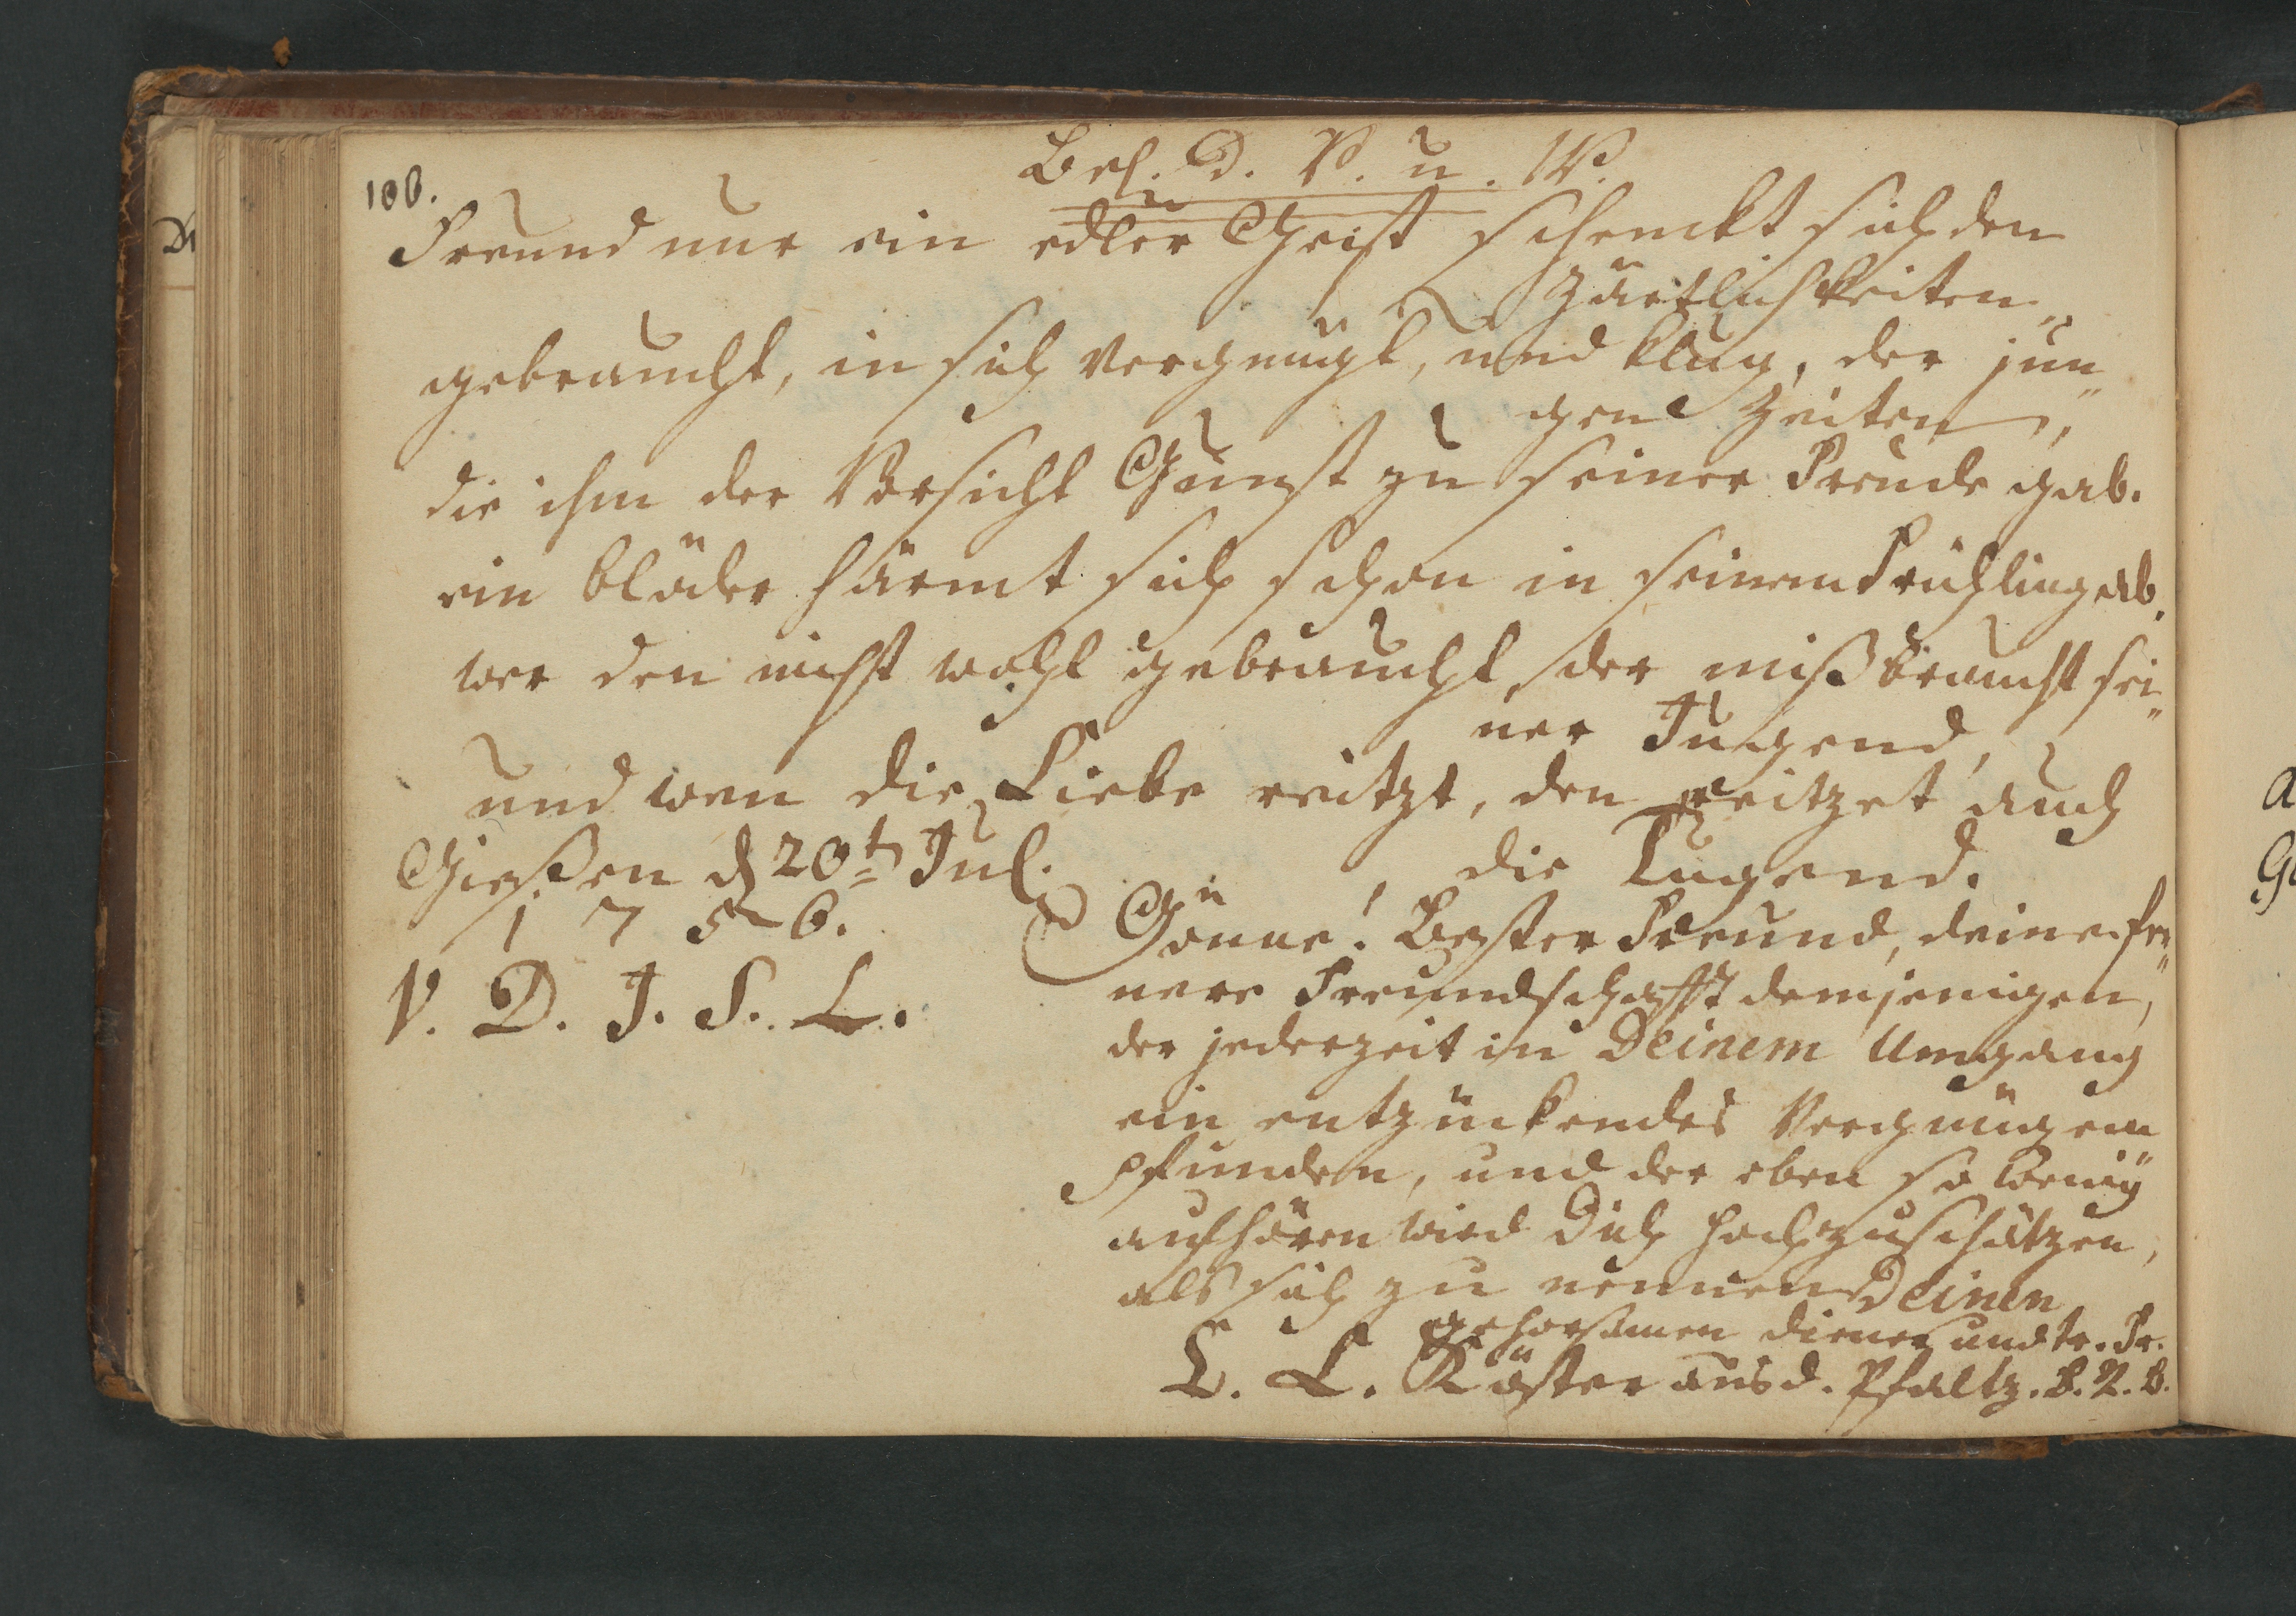 100.
Bes. D. V. u. W.
Freund nur ein edler Geist schenckt sich den
Zärtlichkeiten,
gebraucht, in sich vergnügt, und klug, der jun„
gen Zeiten,
die ihm der Vorsicht Gunst zu seiner Freude gab.
ein blöder härmt sich schon in seinem Frühling ab.
wer den nicht wohl gebraucht, der mißbraucht sei„
ner Jugend,
und wen die Liebe reitzt, den reitzet auch
die Tugend.
Gießen d 20t Jul.
1756.
V. D. J. S. L.
Gönne! Bester Freund, deine fer„
nere Freundschafft demjenigen,
der jederzeit in Deinem Umgang
ein entzückendes Vergnügen em
pfunden, und der eben so wenig
aufhören wird Dich hochzuschätzen,
als sich zu nennen Deinen
gehorsamen diener und tr. Fr.
L. L. Köster aus d. Pfaltz. B. R. B.